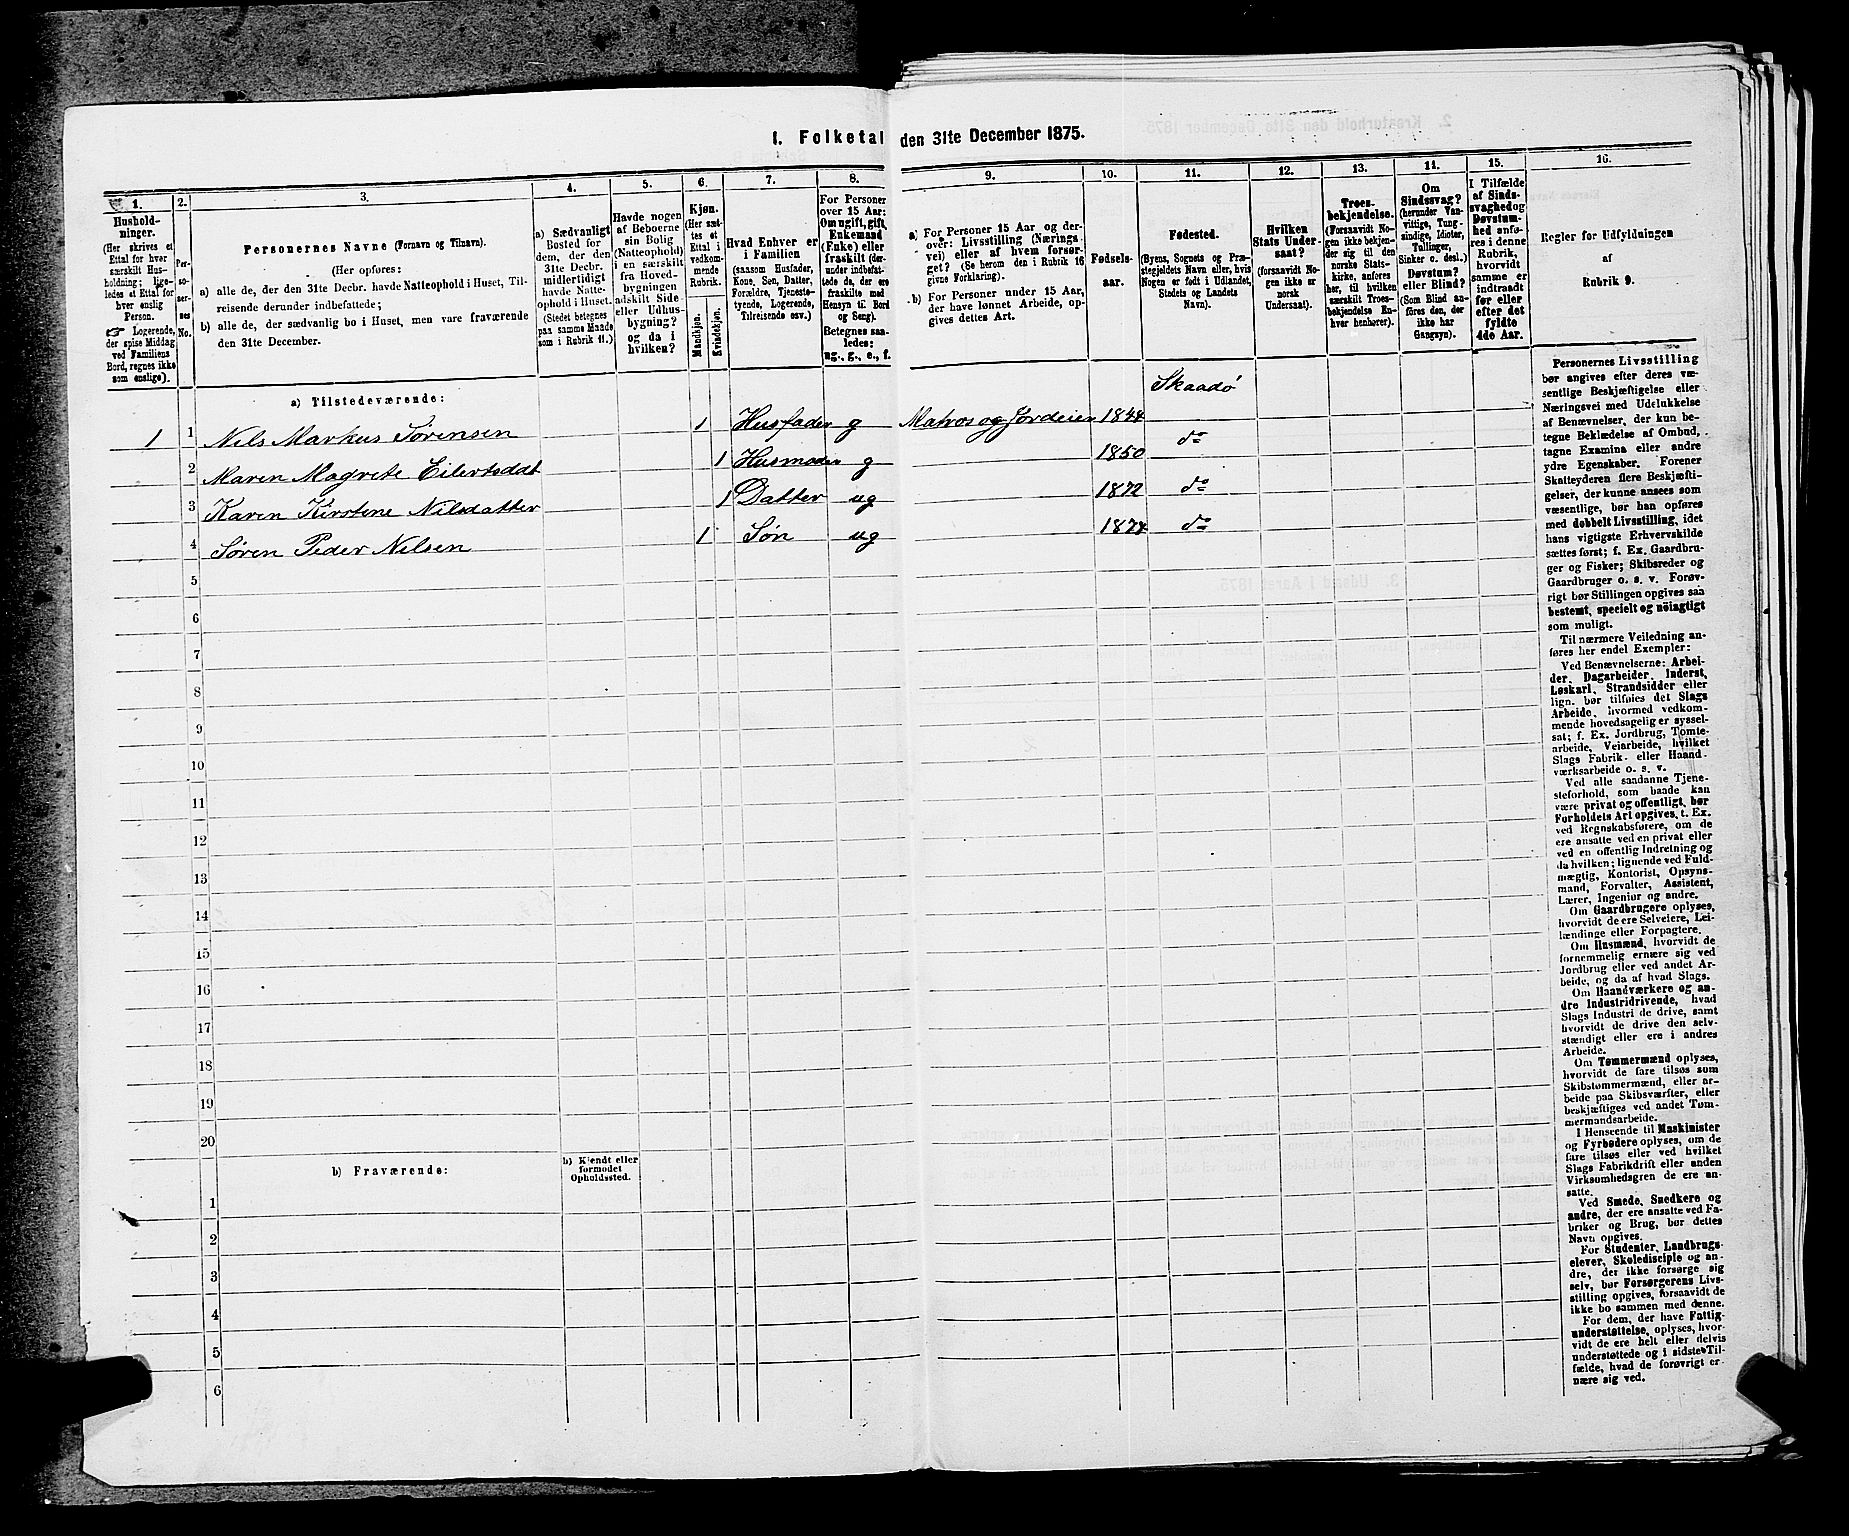 1. Folketal den 31te December 1875.
1.
Hushold-
ninger.
(Her skrives et
Ettal for hver
særskilt Hus-
holdning; lige-
ledes et Ettal for
hver enslig
Person.
☞ Logerende,
der spise Middag
ved Familiens
Bord, regnes ikke
som enslige).
2.
Per-
so-
ner-
nes
No.
3.
Personernes Navne (Fornavn og Tilnavn).
(Her opføres:
a) alle de, der den 31te Decbr. havde Natteophold i Huset, Til-
reisende derunder indbefattede;
b) alle de, der sædvanlig bo i Huset, men vare fraværende
den 31te December.
4.
a) Sædvanligt
Bosted for
dem, der den
31te Decbr.
midlertidigt
havde Natte-
ophold i Huset.
(Stedet betegnes
paa samme Maade
som i Rubrik 11.)
5.
Havde nogen
af Beboerne
sin Bolig
(Natteophold)
i en særskilt
fra Hoved-
bygningen
adskilt Side-
eller Udhus-
bygning?
og da i
hvilken?
6.
Kjøn.
(Her sæt-
tes et
Ettal i
vedkom-
mende
Rubrik.
Mandkjøn.
Kvindekjøn.
7.
Hvad Enhver er
i Familien
(saasom Husfader,
Kone, Søn, Datter,
Forældre, Tjeneste-
tyende, Logerende,
Tilreisende osv.)
8.
For Personer
over 15 Aar:
Om ugift, gift,
Enkemand
(Enke) eller
fraskilt (der-
under indbefat-
tede de, der ere
fraskilte med
Hensyn til Bord
og Seng).
Betegnes saa-
ledes:
ug., g., e., f.
9.
a) For Personer 15 Aar og der-
over: Livsstilling (Nærings-
vei) eller af hvem forsør-
get? (Se herom den i Rubrik 16
givne Forklaring).
b) For Personer under 15 Aar,
der have lønnet Arbeide, op-
gives dettes Art.
10.
Fødsels-
aar.
11.
Fødested.
(Byens, Sognets og Præ-
stegjeldets Navn eller, hvis
Nogen er født i Udlandet,
Stedets og Landets
Navn).
12.
Hvilken
Stats Under-
saat?
(forsaavidt No-
gen ikke er
norsk
Undersaat).
13.
Troes-
bekjendelse.
(Forsaavidt No-
gen ikke bekjen-
der sig til den
norske Stats-
kirke, anføres
her, til hvilken
særskilt Troes-
bekjendelse En-
hver henhører).
14.
Om
Sindssvag?
(herunder Van-
vittige, Tung-
sindige, Idioter,
Tullinger,
Sinker o. desl.)
Døvstum?
eller Blind?
(Som Blind an-
føres den, der
ikke har
Gangsyn).
15.
I Tilfælde
af Sinds-
svaghed og
Døvstum-
hed anfø-
res i denne
Rubrik,
hvorvidt
samme er
indtraadt
før eller
efter det
fyldte
4de Aar.
16.
Regler for Udfyldningen
af
Rubrik 9.
a) Tilstedeværende:
Skaadø
1 1 Nils Markus Sørensen 1 Husfader g Matros og Jordeier 1844
2 Maren Magrete Eilertsddt 1 Husmoder g 1850 do
3 Karen Kirstene Nilsdatter 1 Datter ug 1872 do
4 Søren Peder Nilsen 1 Søn ug 1874 do
5
6
7
8
9
10
11
12
13
14
15
16
17
18
19
20
b) Fraværende:
b) Kjendt eller
formodet
Opholdssted.
1
2
3
4
5
6
Personernes Livsstilling
bør angives efter deres væ-
sentlige Beskjæftigelse eller
Næringsvei med Udelukkelse
af Benævnelser, der kun be-
tegne Beklædelse af Ombud,
tagne Examina eller andre
ydre Egenskaber. Forener
Skatteyderen flere Beskjæfti-
gelser, der kunne ansees som
væsentlige, bør han opføres
med dobbelt Livsstilling, idet
hans vigtigste Erhvervskilde
sættes først; f. Ex. Gaardbru-
ger og Fisker; Skibsreder og
Gaardbruger o. s. v. Forøv-
rigt bør Stillingen opgives saa
bestemt, specielt og nöiagtigt
som muligt.
Til nærmere Veiledning an-
føres her endel Exempler:
Ved Benævnelserne: Arbei-
der, Dagarbeider, Inderst,
Løskarl, Strandsidder eller
lign. bør tilføies det Slags
Arbeide, hvormed vedkom-
mende hovedsagelig er syssel-
sat; f. Ex. Jordbrug, Tomte-
arbeide, Veiarbeide, hvilket
Slags Fabrik- eller Haand-
værksarbeide o. s. v.
Ved alle saadanne Tjene-
steforhold, som baade kan
være privat og offentligt, bør
Forholdets Art opgives, t. Ex.
ved Regnskabsførere, om de
ere ansatte ved en privat eller
ved en offentlig Indretning og
da hvilken; lignende ved Fuld-
mægtig, Kontorist, Opsyns-
mand, Forvalter, Assistent,
Lærer, Ingeniør og andre.
Om Gaardbrugere oplyses,
hvorvidt de ere Selveiere, Lei-
lændinge eller Forpagtere.
Om Husmænd, hvorvidt de
fornemmelig ernære sig ved
Jordbrug eller ved andet Ar-
beide, og da af hvad Slags.
Om Haandværkere og an-
dre Industridrivende, hvad
Slags Industri de drive, samt
hvorvidt de drive den selv-
stændigt eller ere i andres
Arbeide.
Om Tømmermænd oplyses,
hvorvidt de fare tilsøs som
Skibstømmermænd, eller ar-
beide paa Skibsværfter, eller
beskjæftiges ved andet Tøm-
mermandsarbeide.
I Henseende til Maskinister
og Fyrbødere oplyses, om de
fare tilsøs eller ved hvilket
Slags Fabrikdrift eller anden
Virksomhedsgren de ere an-
satte.
Ved Smede, Snedkere og
andre, der ere ansatte ved Fa-
briker og Brug, bør dettes
Navn opgives.
For Studenter, Landbrugs-
elever, Skoledisciple og an-
dre, der ikke forsørge sig
selv, bør Forsørgerens Livs-
stilling opgives, forsaavidt de
ikke bo sammen med denne.
For dem, der have Fattig-
understøttelse, oplyses, hvor-
vidt de ere helt eller delvis
understøttede og i sidste Til-
fælde, hvad de forøvrigt er-
nære sig ved.